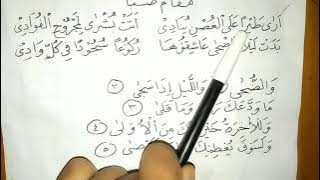 مقام صبا
أرى طيرا على الغصن ينادي أتت بشرى بمجروح الفؤادي
بدت ليلا عاشقوها ركوعا سجودا في كل وادي
والضحى والليل إذا سجى ٢
ما ودعك ربك وما قلى ٣
وللآخرة خير لك من الأولى ٤
ولسوف يعطيك فترضى ٥